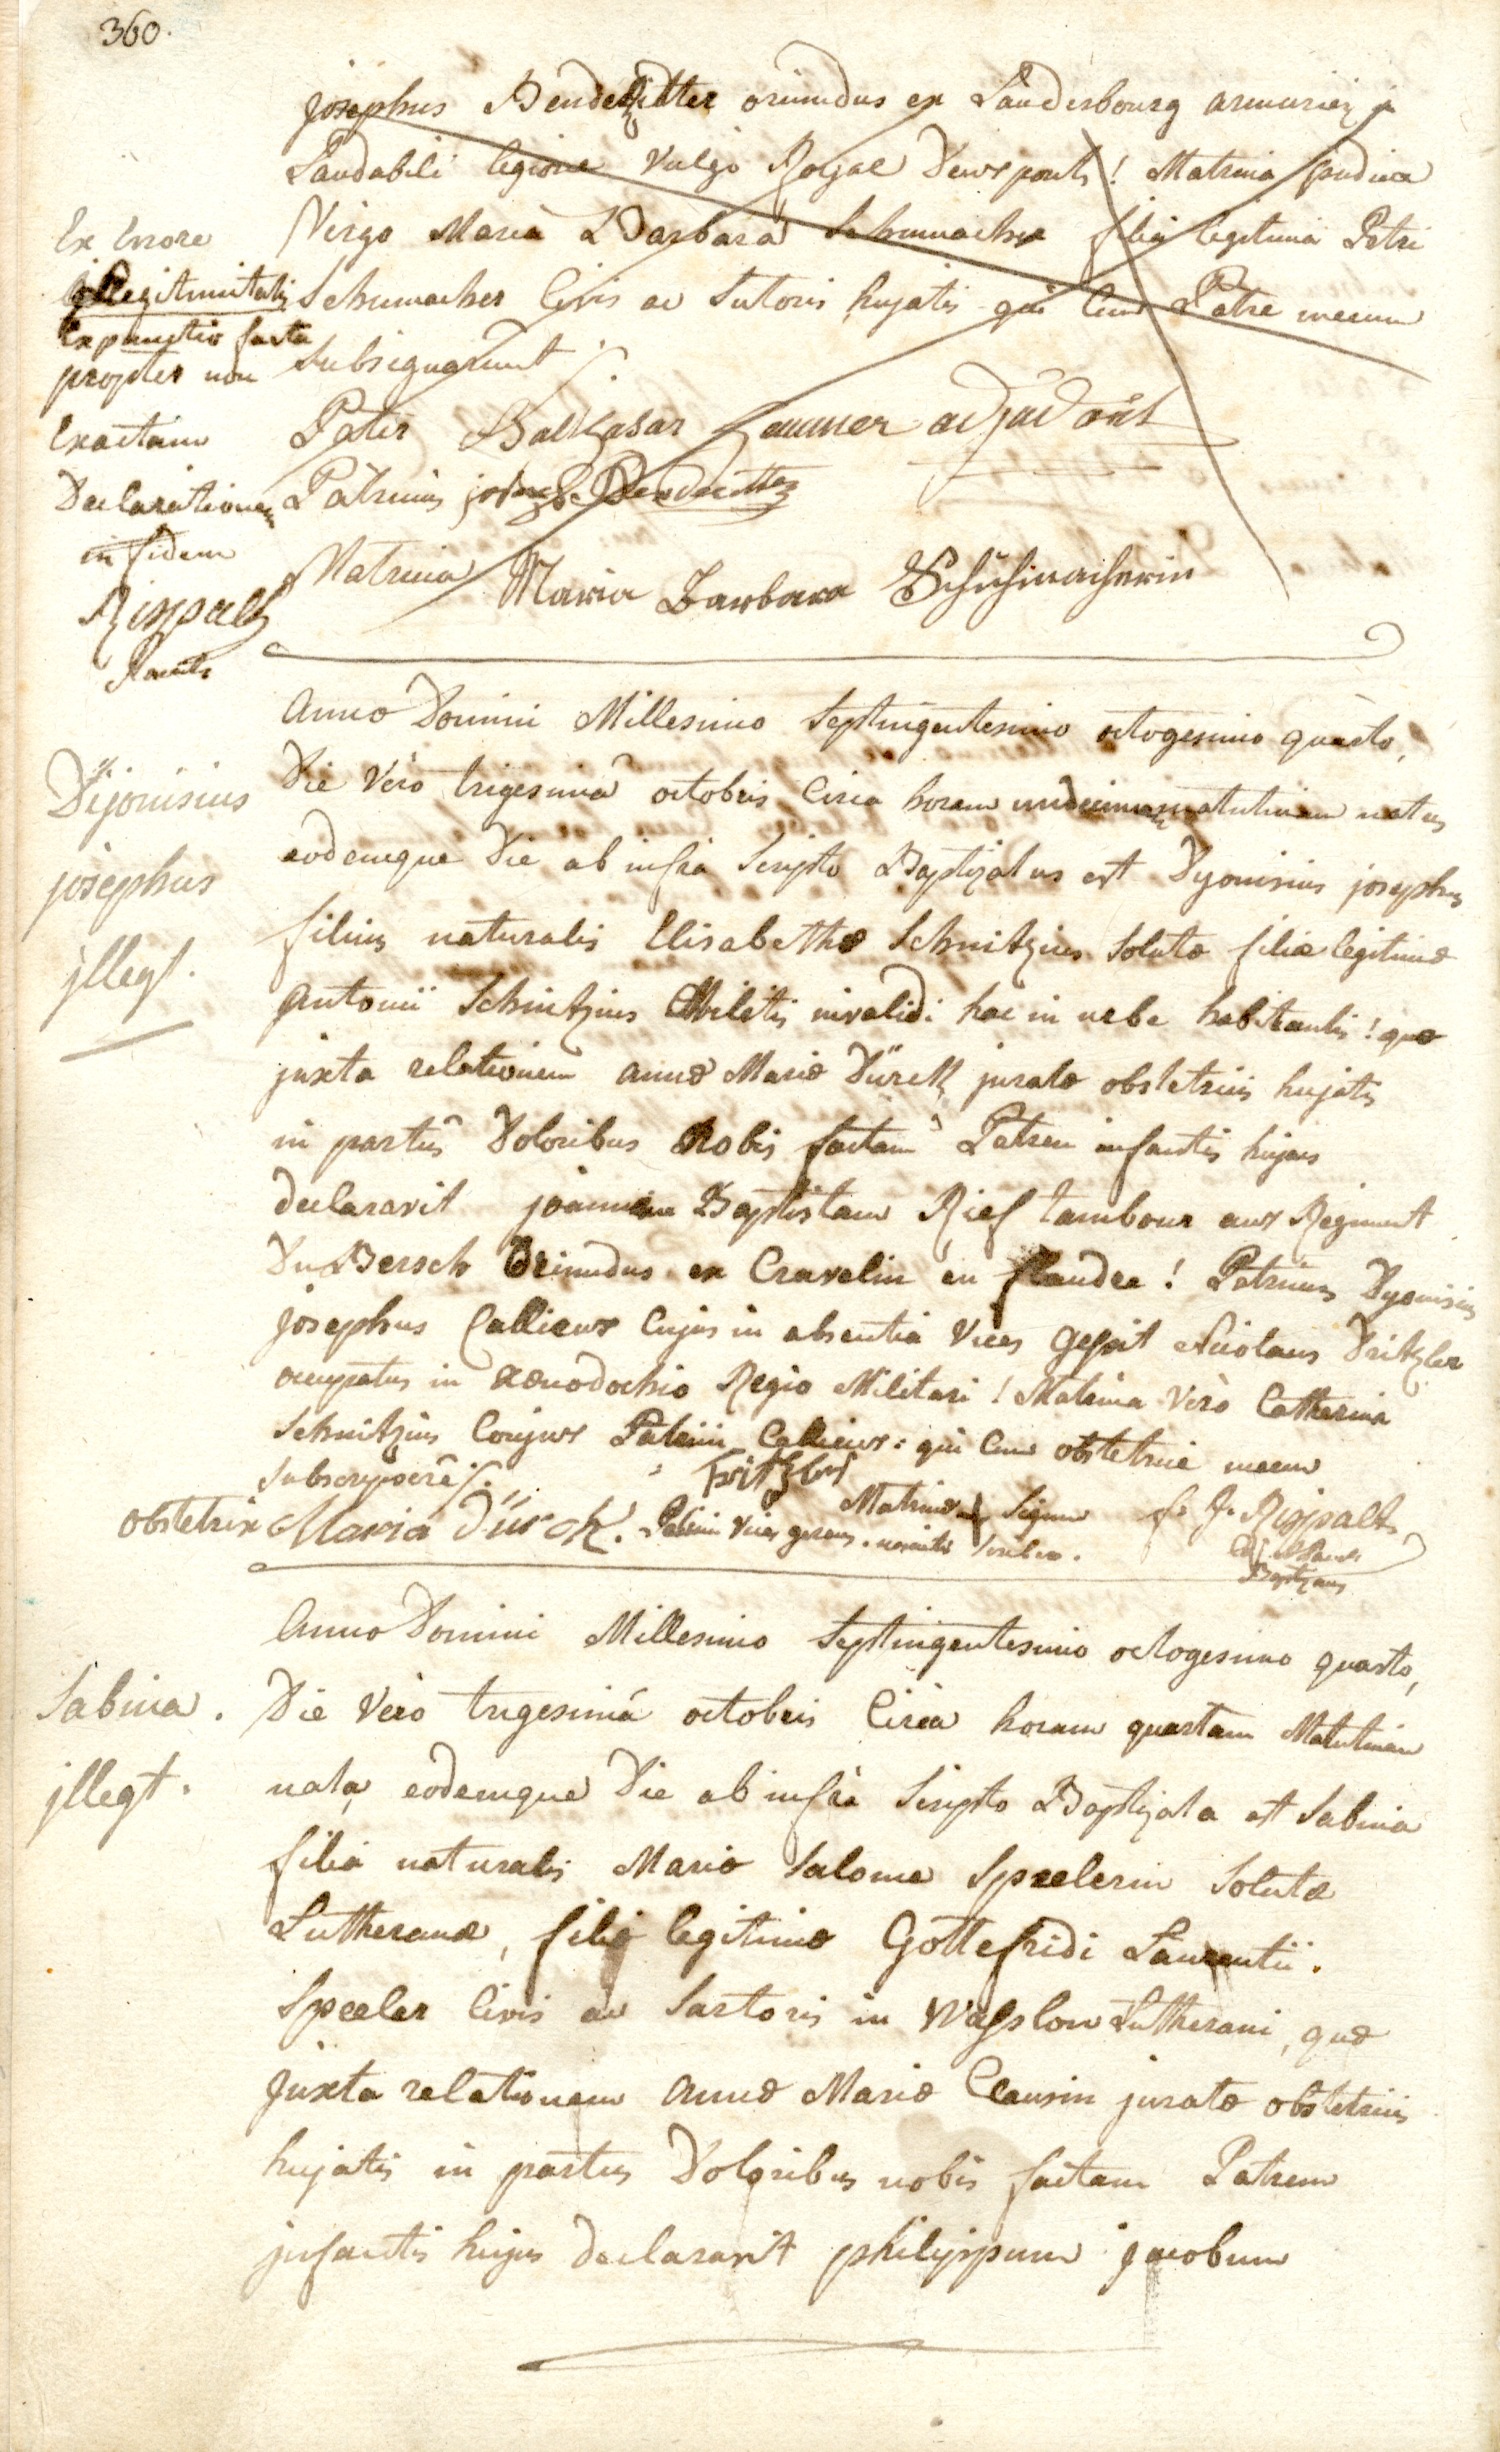 360.
Josephus Benderitter oriundus ex Landersbourg armuriez in
Laudabili legione vulgo Royal Deux ponts! Matrina pudica
Virgo Maria Barbara Schumacher filia legitima Petri
Schumacher Civis ac Sutoris hujatis qui cum Patre mecum
Subsignarunt
Pater Balthasar
Patrinus joseph Bendritter
Matrina Maria Barbara Schuhmacherin
Ex Errore
illegitimitatis
Expunctio facta
propter non
Exactam
Declarationem
in fidem
Rispalt
Anno Domini Millesimo Septingentesimo octogesimo quarto,
Die Vero trigesima octobris Circa horam undecimam matutinam natus
eodemque Die ab infra Scripto Baptizatus est Dyonisius josephus
filius naturalis Elisabethæ Schnitzius Solutæ filiæ legitimæ
Antonii Schnitzius Militis invalidi hac in urbe habitantis! quæ
juxta relationem annæ Mariæ Dürck juratæ obstetricis hujatis
in partus Doloribus Nobis factam Patrem infantis hujus
declaravit joannem Baptistam Rief tambour aux Regiment
Du Bersch Oriundus ex Cravelin en flandre! Patrinus Dyonisius
josephus Callieux Cujus in absentia Vices gessit Nicolaus Dritzler
occupatus in Xenodochio Regio Militari! Matrina Vero Catharina
Schnitzius Conjux Patrini Callieux: qui Cum obstetrice mecum
Subscripsere
Dijonisius
josephus
jllegt.
obstetrix Maria Dürck. Fritzler Patrini Vices gerens. Matrinæ + Signum nescientis scribere. f. J. Rispalt
Baptizans
Anno Domini Millesimo Septingentesimo octogesimo quarto,
Die Vero trigesimá octobris Circa horam quartam Matutinam
nata, eodemque Die ab infra Scripto Baptizata est Sabina
filia naturalis Mariæ Salome Speelerin Solutæ
Lutheranæ, filiæ legitimæ Gottefridi Laurentii
Speeler Civis ac Sartoris in Wasslon Lutherani, quæ
Juxta relationem Annæ Mariæ Clausin juratæ obstetricis
hujatis in partus Doloribus nobis factam Patrem
jnfantis hujus declaravit philippum jacobum
Sabina.
jllegt.